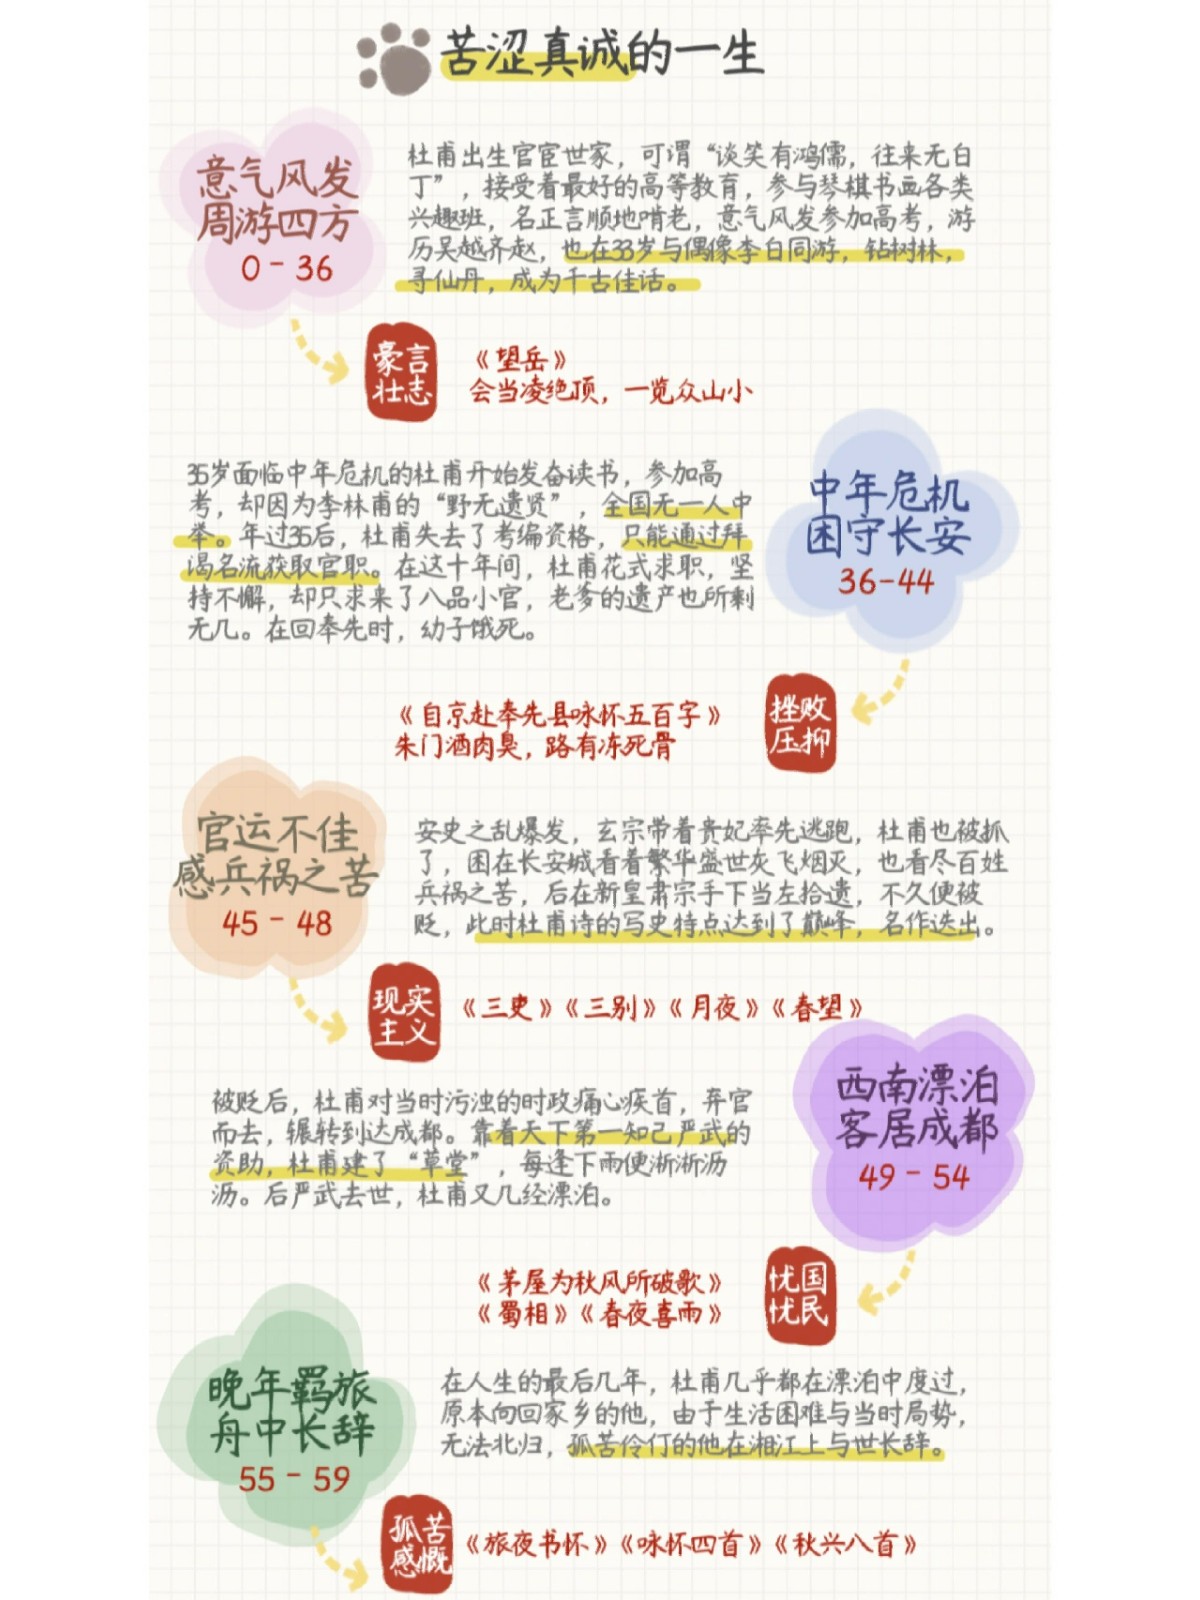 苦涩真诚的一生
意气风发
周游四方
0-36
杜甫出生官宦世家，可谓“谈笑有鸿儒，往来无白
丁”，接受着最好的高等教育，参与琴棋书画各类
兴趣班，名正言顺地啃老，意气风发参加高考，游
历吴越齐赵，也在33岁与偶像李白同游，钻树林，
寻仙丹，成为千古佳话。
豪言
壮志
《望岳》
会当凌绝顶，一览众山小
中年危机
困守长安
36-44
35岁面临中年危机的杜甫开始发奋读书，参加高
考，却因为李林甫的“野无遗贤”，全国无一人中
举。年过35后，杜甫失去了考编资格，只能通过拜
谒名流获取官职。在这十年间，杜甫花式求职，坚
持不懈，却只求来了八品小官，老爹的遗产也所剩
无几。在回奉先时，幼子饿死。
挫败
压抑
《自京赴奉先县咏怀五百字》
朱门酒肉臭，路有冻死骨
官运不佳
感兵祸之苦
45-48
安史之乱爆发，玄宗带着贵妃率先逃跑，杜甫也被抓
了，困在长安城看着繁华盛世灰飞烟灭，也看尽百姓
兵祸之苦，后在新皇肃宗手下当左拾遗，不久便被
贬，此时杜甫诗的写史特点达到了巅峰，名作迭出。
现实
主义
《三吏》《三别》《月夜》《春望》
西南漂泊
客居成都
49-54
被贬后，杜甫对当时污浊的时政痛心疾首，弃官
而去，辗转到达成都。靠着天下第一知己严武的
资助，杜甫建了“草堂”，每逢下雨便淅淅沥
沥。后严武去世，杜甫又几经漂泊。
忧国
忧民
《茅屋为秋风所破歌》
《蜀相》《春夜喜雨》
晚年羁旅
舟中长辞
55-59
在人生的最后几年，杜甫几乎都在漂泊中度过，
原本向回家乡的他，由于生活困难与当时局势，
无法北归，孤苦伶仃的他在湘江上与世长辞。
孤苦
感慨
《旅夜书怀》《咏怀四首》《秋兴八首》